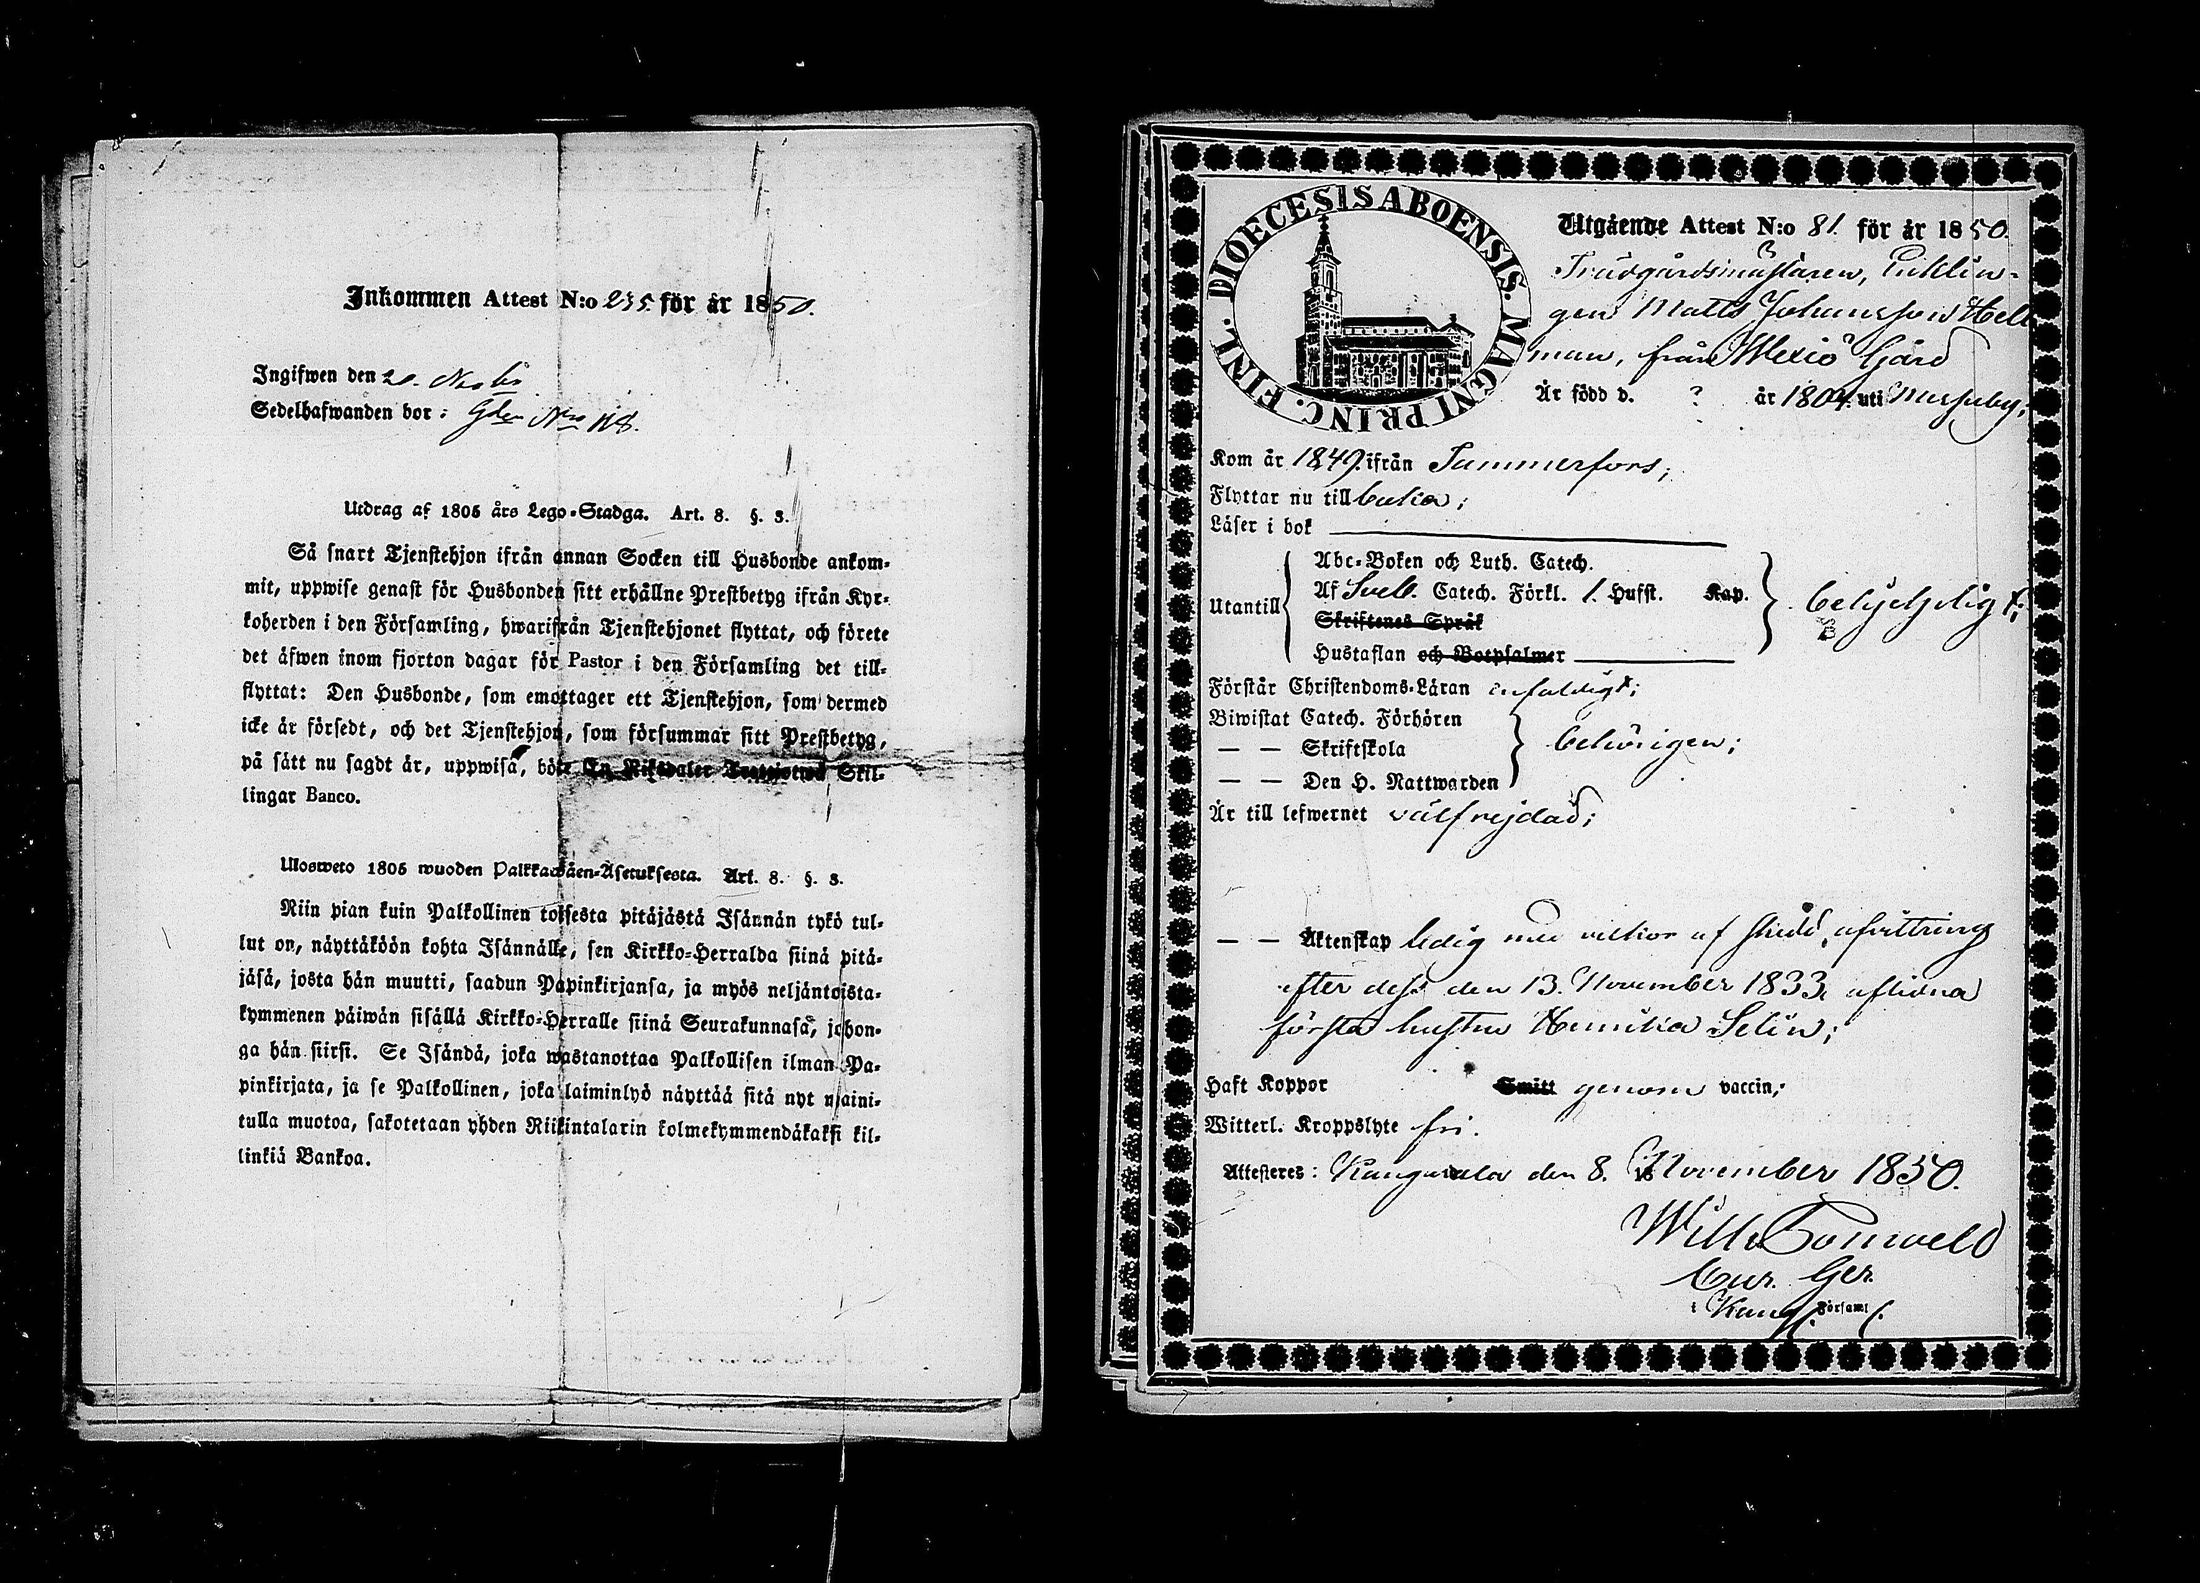 Inkommen Attest N:o 235. för år 1850.
Ingifwen den 20. Novbr
Sedelhafwanden bor: Gden Nro 118.
Utdrag af 1805 års Lego-Stadga. Art. 8. §. 3.
Så snart Tjenstehjon ifrån annan Socken till Husbonde ankom-
mit, uppwise genast för Husbonden sitt erhållne Prestbetyg ifrån Kyr-
koherden i den Församling, hwarifrån Tjenstehjonet flyttat, och förete
det äfwen inom fjorton dagar för Pastor i den Församling det till-
flyttat: Den Husbonde, som emottager ett Tjenstehjon, som dermed
icke är försedt, och det Tjenstehjon, som försummar sitt Prestbetyg,
på sätt nu sagdt är, uppwisa, böte En Riksdaler Trettiotwå Skil-
lingar Banco.
Ulosweto 1805 wuoden Palkkawäen-Asetuksesta. Art. 8. §. 3.
Niin pian kuin Palkollinen toisesta pitäjästä Isännän tykö tul-
lut on, näyttäköön kohta Isännälle, sen Kirkko-Herralda siinä pitä-
jäsä, josta hän muutti, saadun Papinkirjansa, ja myös neljäntoista-
kymmenen päiwän sisällä Kirkko-Herralle siinä Seurakunnasa, johon-
ga hän siirsi. Se Isändä, joka wastanottaa Palkollisen ilman Pa-
pinkirjata, ja se Palkollinen, joka laiminlyö näyttää sitä nyt maini-
tulla muotoa, sakotetaan yhden Riikintalarin kolmekymmendäkaksi kil-
linkiä Bankoa.
DIOECESIS ABOENSIS. MAGNI PRINC. FINL.
Utgående Attest N:o 81. för år 1850.
Trädgårdsmästaren, Enklin-
gen Matts Johansson Hell
man, från Wexiö Gård
Är född d. ? år 1804. uti Messuby;
Kom år 1849. ifrån Tammerfors;
Flyttar nu till
Läser i bok
Utantill
Abc-Boken och Luth. Catech.
Af Sveb. Catech. Förkl. 1. Hufst. Kap.
Skriftenes Språk
Hustaflan och Botpsalmer
behjelpligt;
Förstår Christendoms-Läran enfaldigt;
Biwistat Catech. Förhören
— — Skriftskola
— — Den H. Nattwarden
behörigen;
Är till lefwernet välfrejdad;
— — Äktenskap ledig med vilkor af skedd afvittring
efter dess den 13. November 1833, aflidna
första hustru Henrika Selin;
Haft Koppor Smitt genom vaccin;
Witterl. Kroppslyte fri.
Attesteres: Kangasala den 8. November 1850.
Wilh.
Cur. Ger.
i Kang. Församl.